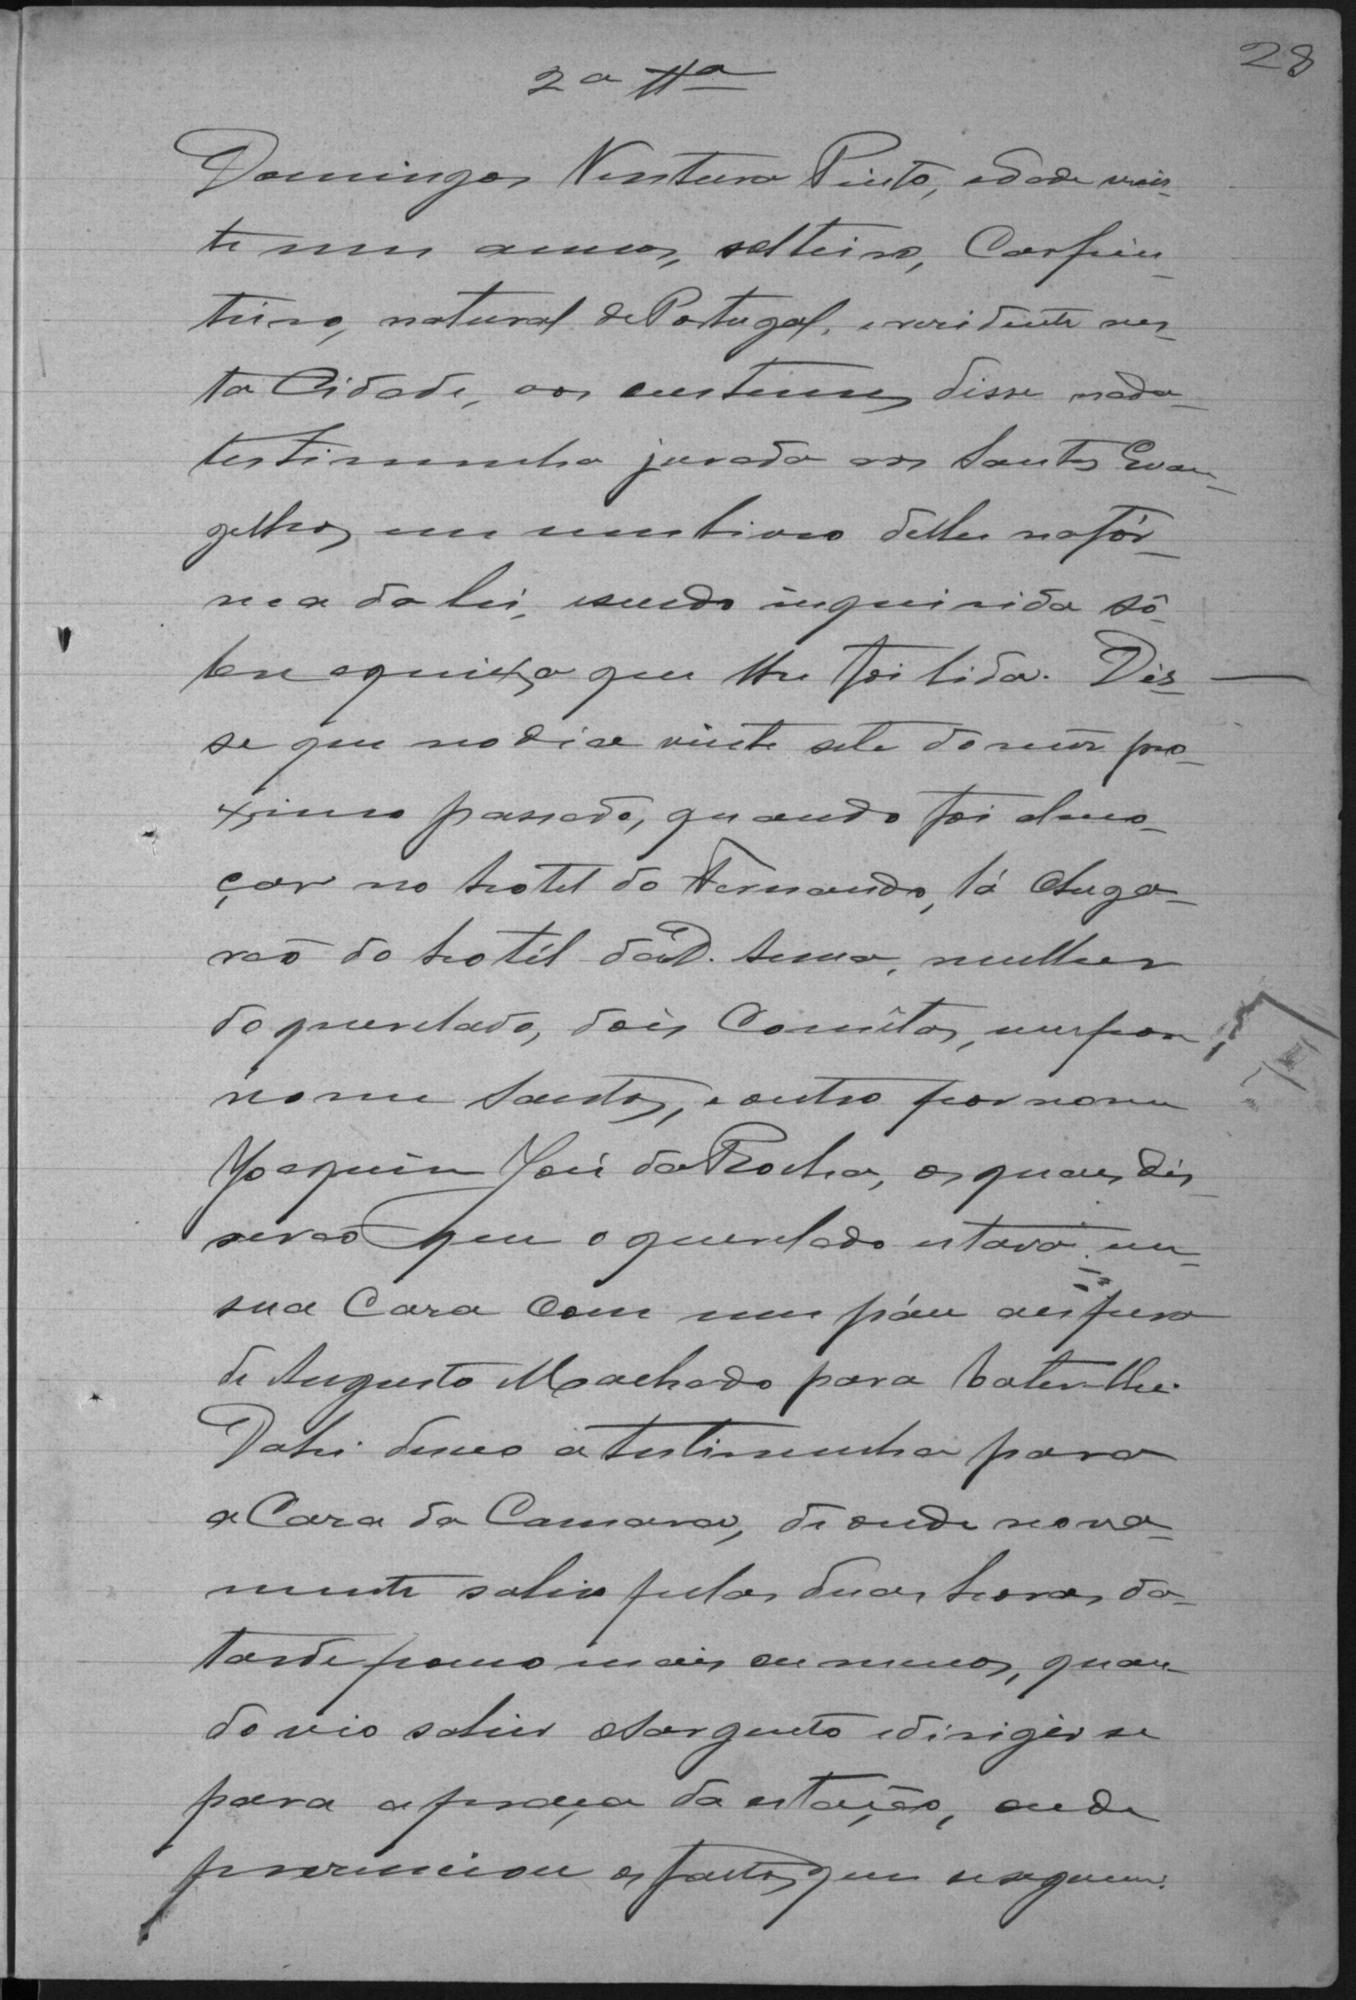 28
2a tta
Domingos Ventura Pinto, edade vin-
te um annos, solteiro, Carpin-
teiro, natural de Portugal, e residente nes-
ta Cidade, aos custumes disse nada
testimunha jurada aos Santos Evan-
gelhos em um livro delles na fór-
ma da lei, e sendo inquirida sô-
bre a queixa que lhe foi lida. Dis-
se que no dia vinte sete do mêz pro-
ximo passado, quando foi almo-
çar no hotel do Fernando, lá chega-
rão do hotél da D. Anna, mulher
do querelado, dois Comêtas, um por
nome Santos, e outro por nome
Joaquim José da Rocha, os quaes dis-
serão que o querelado estava em
sua Caza com um páu a espera
de Augusto Machado para bater-lhe.
Dahi desceo a testimunha para
a Caza da Camara, de onde nova-
mente sahio pelas duas horas da
tarde pouco mais ou menos, quan-
do vio sahir Augusto e dirigir se
para a praça da estação, onde
prezenciou os factos que se seguem: